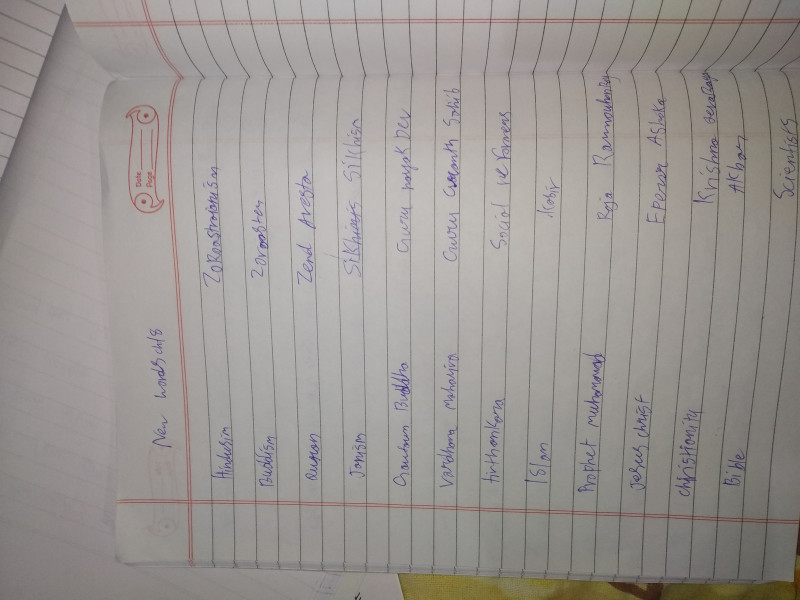 Date
Page
New words ch18
Hinduism Zoroastrianism
Buddism Zoroaster
Quran Zend Avesta
Janism Sikhism
Gautam Buddha Guru nanak Dev
Vardhana Mahavira Guru Granth Sahib
tirthankara Social reformers
Islam Kabir
Prophet muhammad Raja Rammohan
Jesus christ Ashoka
christianity Krishna
Bible Akbar
Scientists